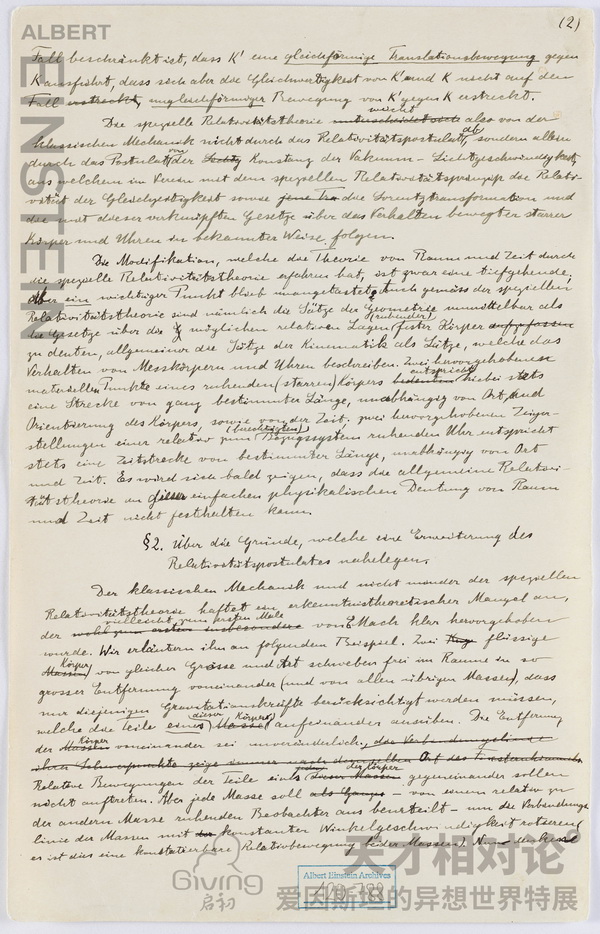 ALBERT
EINSTEIN
(2)
Fall beschränkt ist, dass K' eine gleichförmige Translationsbewegung gegen
K ausführt, dass sich aber die Gleichwertigkeit von K' und K nicht auf den
Fall erstreckt, ungleichförmiger Bewegung von K' gegen K erstreckt.
Die spezielle Relativitätstheorie unterscheidet sich weicht also von der
klassischen Mechanik nicht durch das Relativitätspostulat ab, sondern allein
durch das Postulat von der Konstanz der Vakuum-Lichtgeschwindigkeit,
aus welchem im Verein mit dem speziellen Relativitätsprinzip die Relati-
vität der Gleichzeitigkeit sowie die Lorentztransformation und
die mit dieser verknüpften Gesetze über das Verhalten bewegter starrer
Körper und Uhren in bekannter Weise folgen.
Die Modifikation, welche die Theorie von Raum und Zeit durch
die spezielle Relativitätstheorie erfahren hat, ist zwar eine tiefgehende.
Aber ein wichtiger Punkt blieb unangetastet. Auch gemäss der speziellen
Relativitätstheorie sind nämlich die Sätze der Geometrie unmittelbar als
die Gesetze über die möglichen relativen Lagen (ruhender) fester Körper aufzufassen
zu deuten, allgemeiner die Sätze der Kinematik als Sätze, welche das
Verhalten von Messkörpern und Uhren beschreiben. Zwei hervorgehobenen
materiellen Punkten eines ruhenden (starren) Körpers entspricht hiebei stets
eine Strecke von ganz bestimmter Länge, unabhängig von Ort und
Orientierung des Körpers, sowie von der Zeit. Zwei hervorgehobenen Zeiger-
stellungen einer relativ zum (berechtigten) Bezugssystem ruhenden Uhr entspricht
stets eine Zeitstrecke von bestimmter Länge, unabhängig von Ort
und Zeit. Es wird sich bald zeigen, dass die allgemeine Relativi-
tätstheorie an dieser einfachen physikalischen Deutung von Raum
und Zeit nicht festhalten kann.
§2. Über die Gründe, welche eine Erweiterung des
Relativitätspostulates nahelegen.
Der klassischen Mechanik und nicht minder der speziellen
Relativitätstheorie haftet ein erkenntnistheoretischer Mangel an,
der vielleicht zum ersten Male von E. Mach klar hervorgehoben
wurde. Wir erläutern ihn an folgendem Beispiel. Zwei flüssige
Massen Körper von gleicher Grösse und Art schweben frei im Raume in so
grosser Entfernung voneinander (und von allen übrigen Massen), dass
nur diejenigen Gravitationskräfte berücksichtigt werden müssen,
welche die Teile eines dieser Körper aufeinander ausüben. Die Entfernung
der Massen Körper voneinander sei unveränderlich.
Relative Bewegungen der Teile eines der Körper gegeneinander sollen
nicht auftreten. Aber jede Masse soll – von einem relativ zu
der anderen Masse ruhenden Beobachter aus beurteilt – um die Verbindungs-
linie der Massen mit konstanter Winkelgeschwindigkeit rotieren
es ist dies eine konstatierbare Relativbewegung beider Massen).
Giving
启初
Albert Einstein Archives
120-788
天才相对论
爱因斯坦的异想世界特展